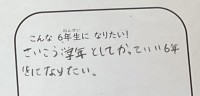 こんな6年生になりたい!
さいこう学年としてかっていい6年
生になりたい。